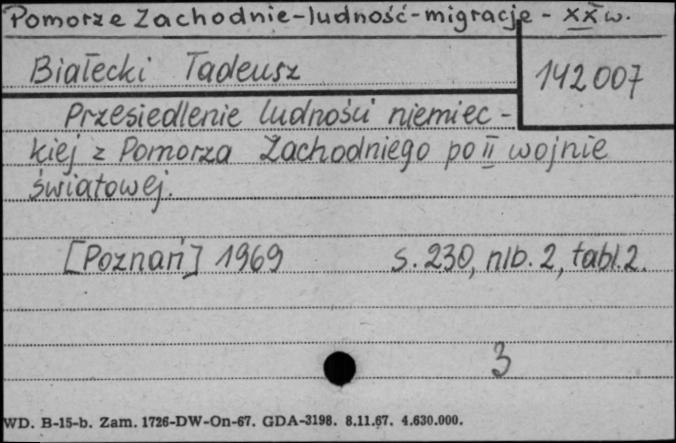 Pomorze Zachodnie-ludność-migracje - XX w.
Białecki Tadeusz
142007
Przesiedlenie ludności niemiec-
kiej z Pomorza Zachodniego po II wojnie
światowej.
[Poznań] 1969 s. 230, nlb. 2, tabl. 2.
3
WD. B-15-b. Zam. 1726-DW-On-67. GDA-3198. 8.11.67. 4.630.000.